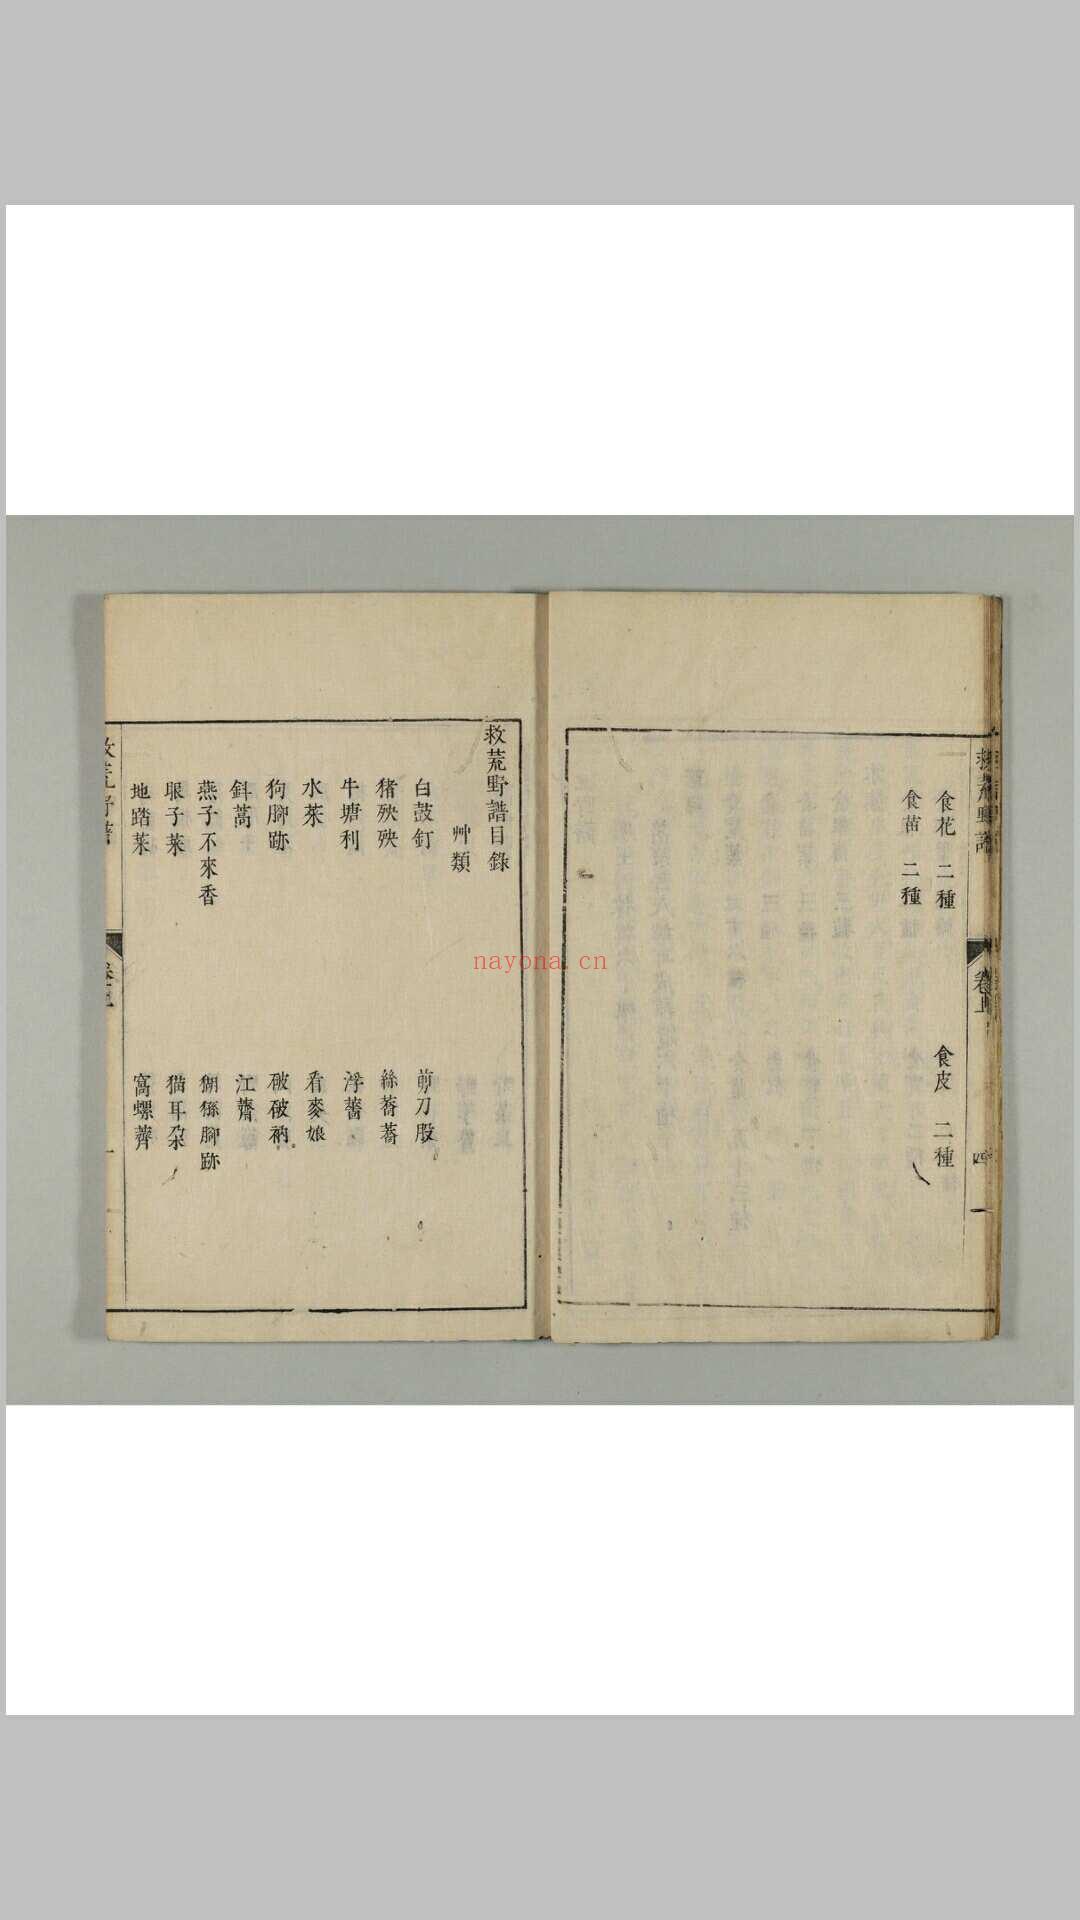 救荒野譜
卷上
四
食花 二種
食皮 二種
食苗 二種
救荒野譜目錄
艸類
白鼓釘
剪刀股
猪殃殃
絲蕎蕎
牛塘利
浮薔
水菜
看麥娘
狗腳跡
破破衲
斜蒿
江薺
燕子不來香
猢猻腳跡
眼子菜
猫耳朶
地踏菜
窩螺薺
救荒野譜
卷上
一
nayona.cn